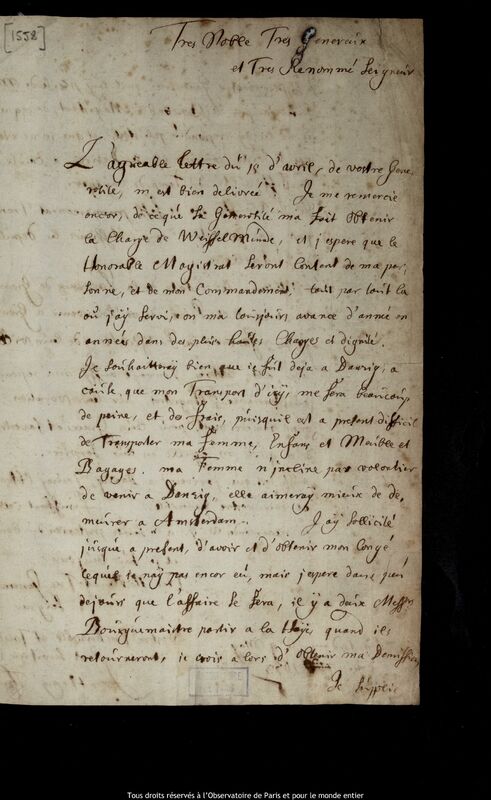 [1558]
Tres Noble Tres Genereux
et Tres Renommé Seigneur
L'agreable lettre du 18 d'avril, de vostre Gene,
rosité, m'est bien delivreé. Je me remercie
encor, de ce que sa Generosité m'a fait obtenir
la Charge de Weisselmunde, et j'espere que le
Honorable Magistrat seront Content de ma per,
sonne, et de mon Commandement, tout par tout la
ou j'ay servi, on m'a tousjours avancé d'année en
année dans des plus hautes Charges et dignité.
Je souhaitteray bien que je fut deja a Danzig, a
cause que mon Transport d'icy, me fera beaucoup
de peine, et de frais, puisquil est a present difficil
de Transporter ma Femme, Enfans et Meuble et
Bagages. ma Femme n'incline pas volontier
de venir a Danzig, elle aimeray mieux de de,
meurer a Amsterdam. J'ay sollicité
jusque a present, d'avoir et d'obtenir mon Congé
lequel je n'ay pas encor eu, mais j'espere dans peu
de jours que l'affaire se fera, il y a deux Messrs
Bourguemaistre partir a la Haye, quand ils
retourneront, je crois alors d'obtenir ma Demission
Je supplie
Tous droits réservés à l'Observatoire de Paris et pour le monde entier